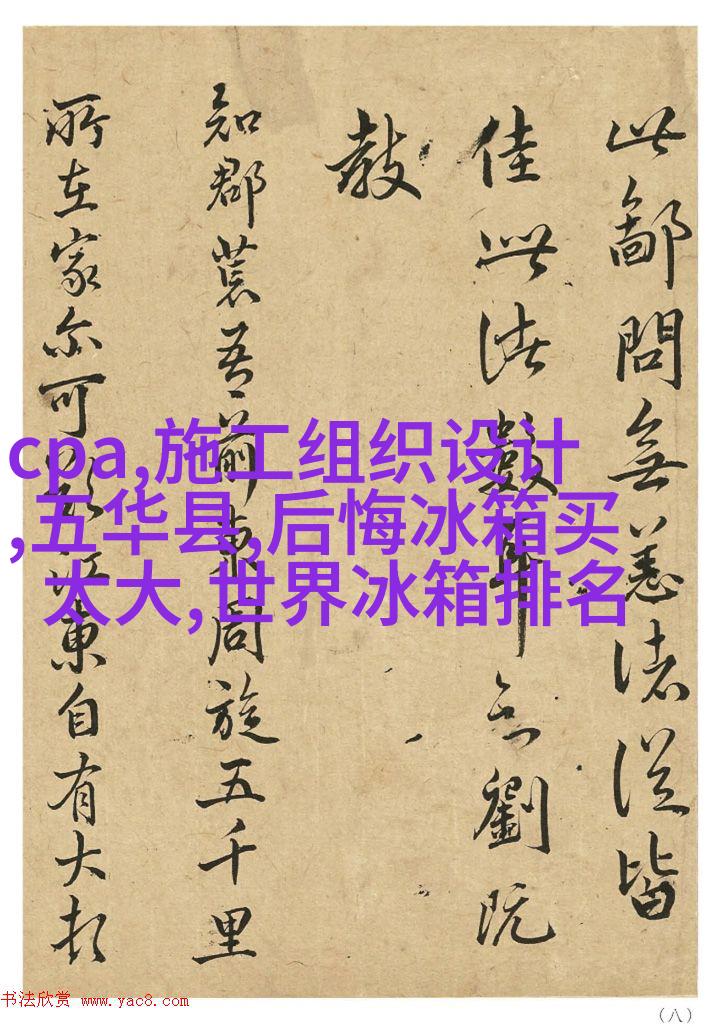 此鄙問無恙諸從皆
佳此諸數劉既
敎
知郡荒吾前東周旋五千里
所在家尒可歎江東自有大
cpa,施工组织设计
,五华县,后悔冰箱买
太大,世界冰箱排名
书法欣赏 www.yac8.com
（八）